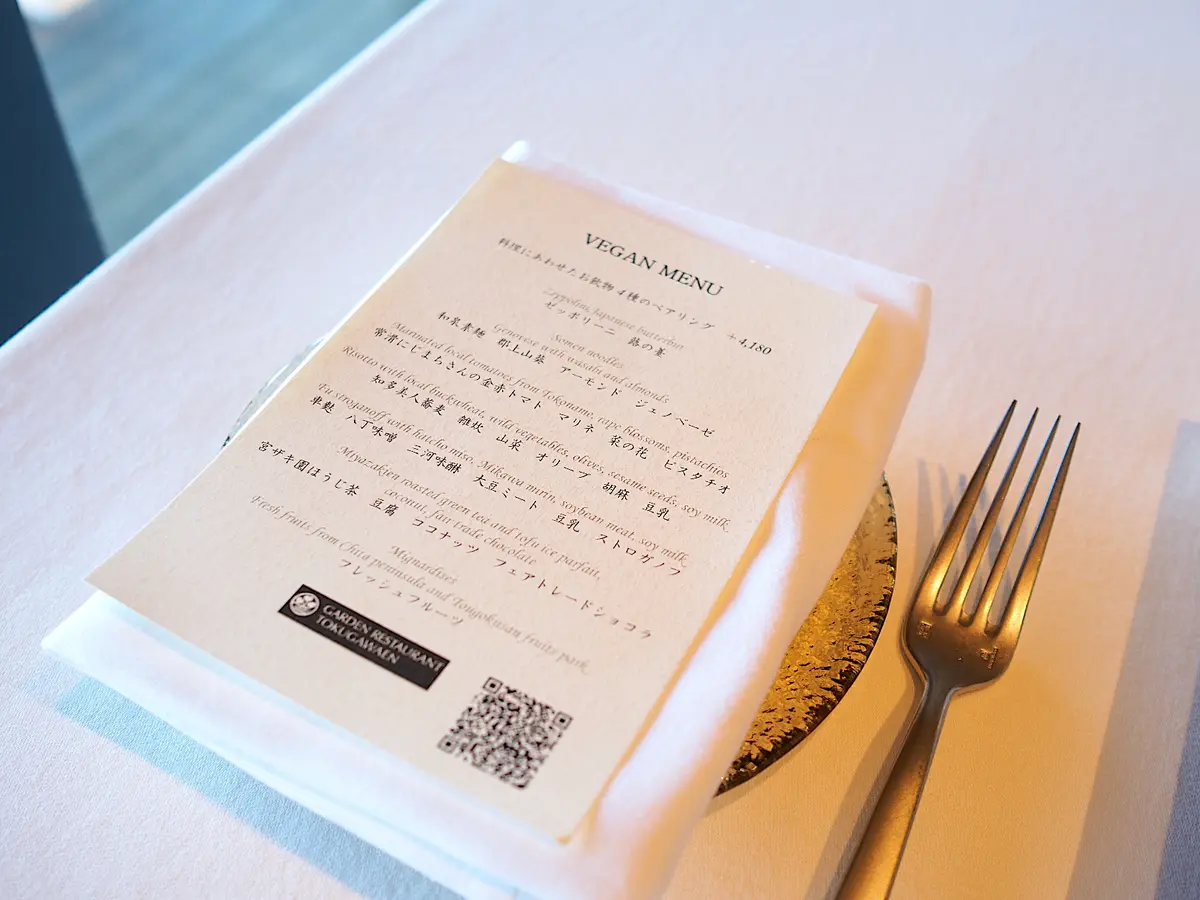 VEGAN MENU
料理にあわせたお飲物4種のペアリング +4,180
Zeppolini, Japanese butterbur
ゼッポリーニ 蕗の薹
Somen noodles
Genovese with wasabi and almonds
和泉素麺 郡上山葵 アーモンド ジェノベーゼ
Marinated local tomatoes from Tokoname, rape blossoms, pistachios
常滑にじまちさんの金赤トマト マリネ 菜の花 ピスタチオ
Risotto with local buckwheat, wild vegetables, olives, sesame seeds, soy milk
知多美人蕎麦 雑炊 山菜 オリーブ 胡麻 豆乳
Fu stroganoff with hatcho miso, Mikawa mirin, soybean meat, soy milk
車麩 八丁味噌 三河味醂 大豆ミート 豆乳 ストロガノフ
Miyazakien roasted green tea and tofu ice parfait,
coconut, fair trade chocolate
宮ザキ園ほうじ茶 豆腐 ココナッツ フェアトレードショコラ
Mignardises
Fresh fruits from Chita peninsula and Tougokusan fruits park
フレッシュフルーツ
GARDEN RESTAURANT
TOKUGAWAEN